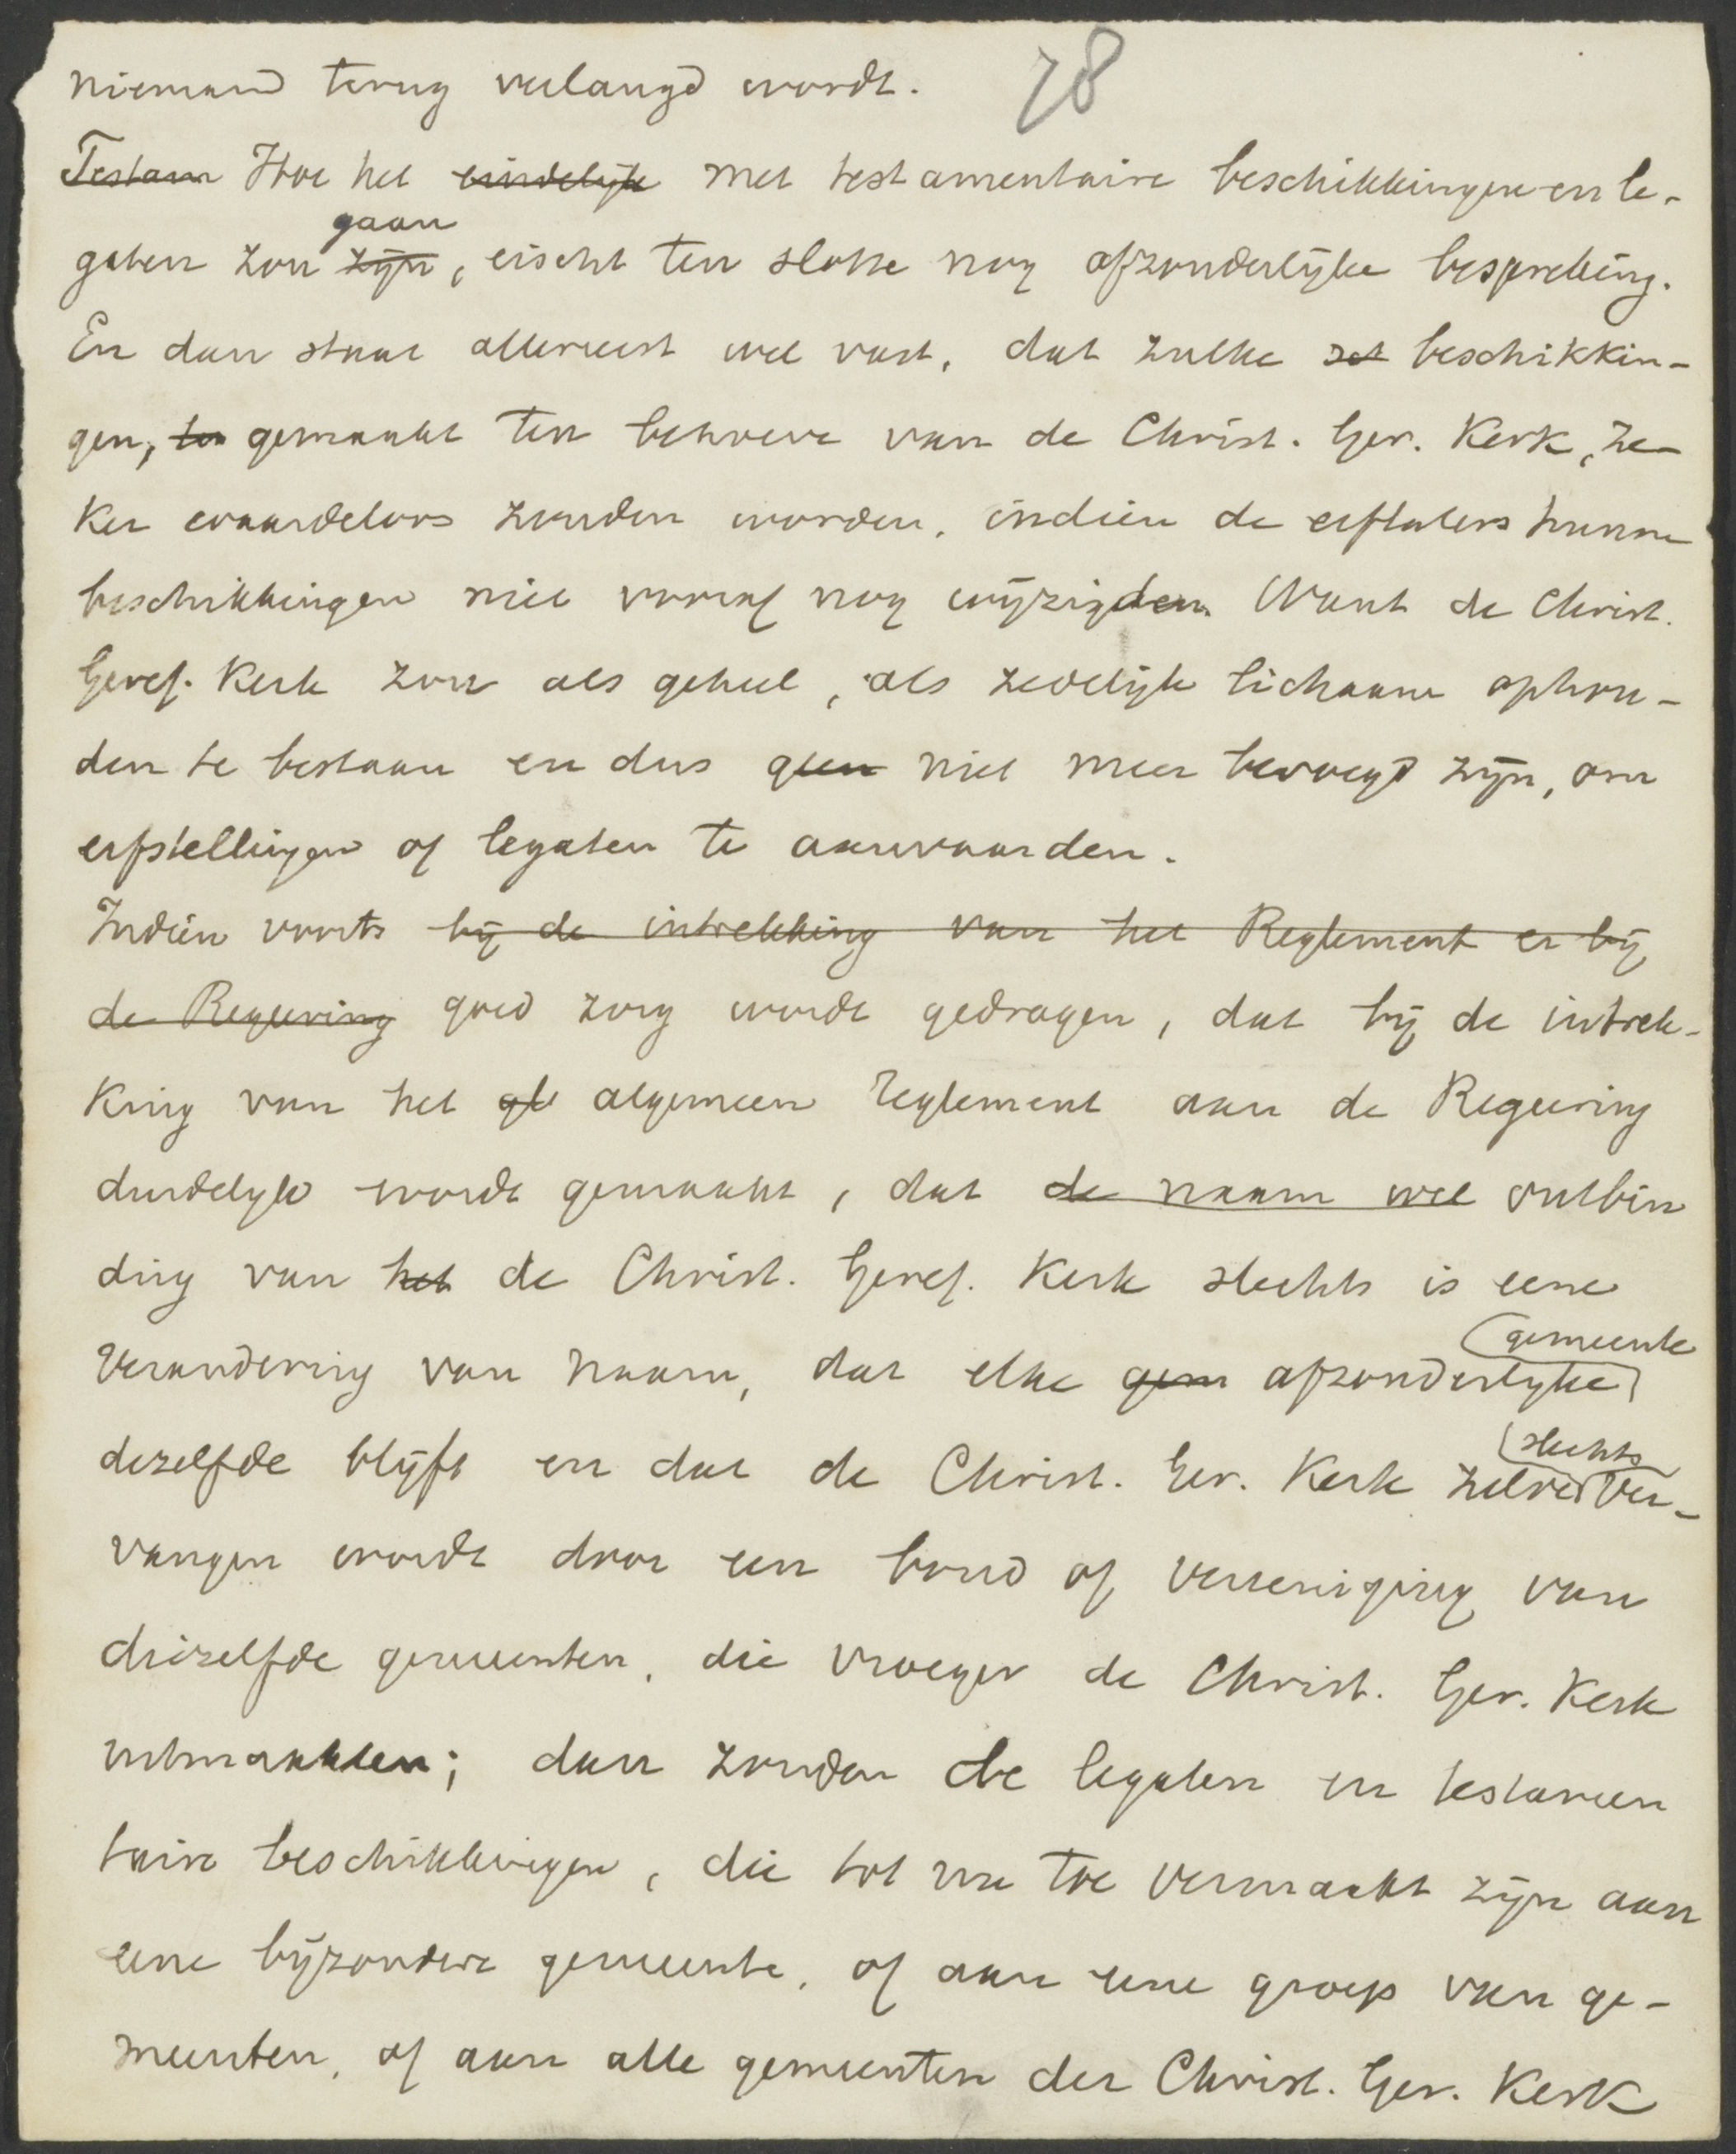 niemand terug verlangd wordt. 78
Testam Hoe het eindelijk met testamentaire beschikkingen en le-
gaan
gaten zou zijn, eischt ten slotte nog afzonderlijke bespreking.
En dan staat allereerst wel vast, dat zulke beschikkin-
gen, ten gemaakt ten behoeve van de Christ. Ger. Kerk, ze-
ker waardeloos zouden worden, indien de erflaters hunne
beschikkingen niet vooraf nog wijzigden. Want de Christ.
Geref. Kerk zou als geheel, als zedelijk lichaam ophou-
den te bestaan en dus geen niet meer bevoegd zijn, om
erfstellingen of legaten te aanvaarden.
Indien voorts bij de intrekking van het Reglement er bij
de Regeering goed zorg wordt gedragen, dat bij de intrek-
king van het gl algemeen reglement aan de Regeering
duidelijk wordt gemaakt, dat de naam wel ontbin
ding van het de Christ. Geref. Kerk slechts is eene
verandering van naam, dat elke gem afzonderlijke
gemeente
dezelfde blijft en dat de Christ. Ger. Kerk zelve ver-
slechts
vangen wordt door een bond of vereeniging van
diezelfde gemeenten, die vroeger de Christ. Ger. Kerk
uitmaakten; dan zouden de legaten en testamen
taire beschikkingen, die tot nu toe vermaakt zijn aan
eene bijzondere gemeente, of aan eene groep van ge-
meenten, of aan alle gemeenten der Christ. Ger. Kerk